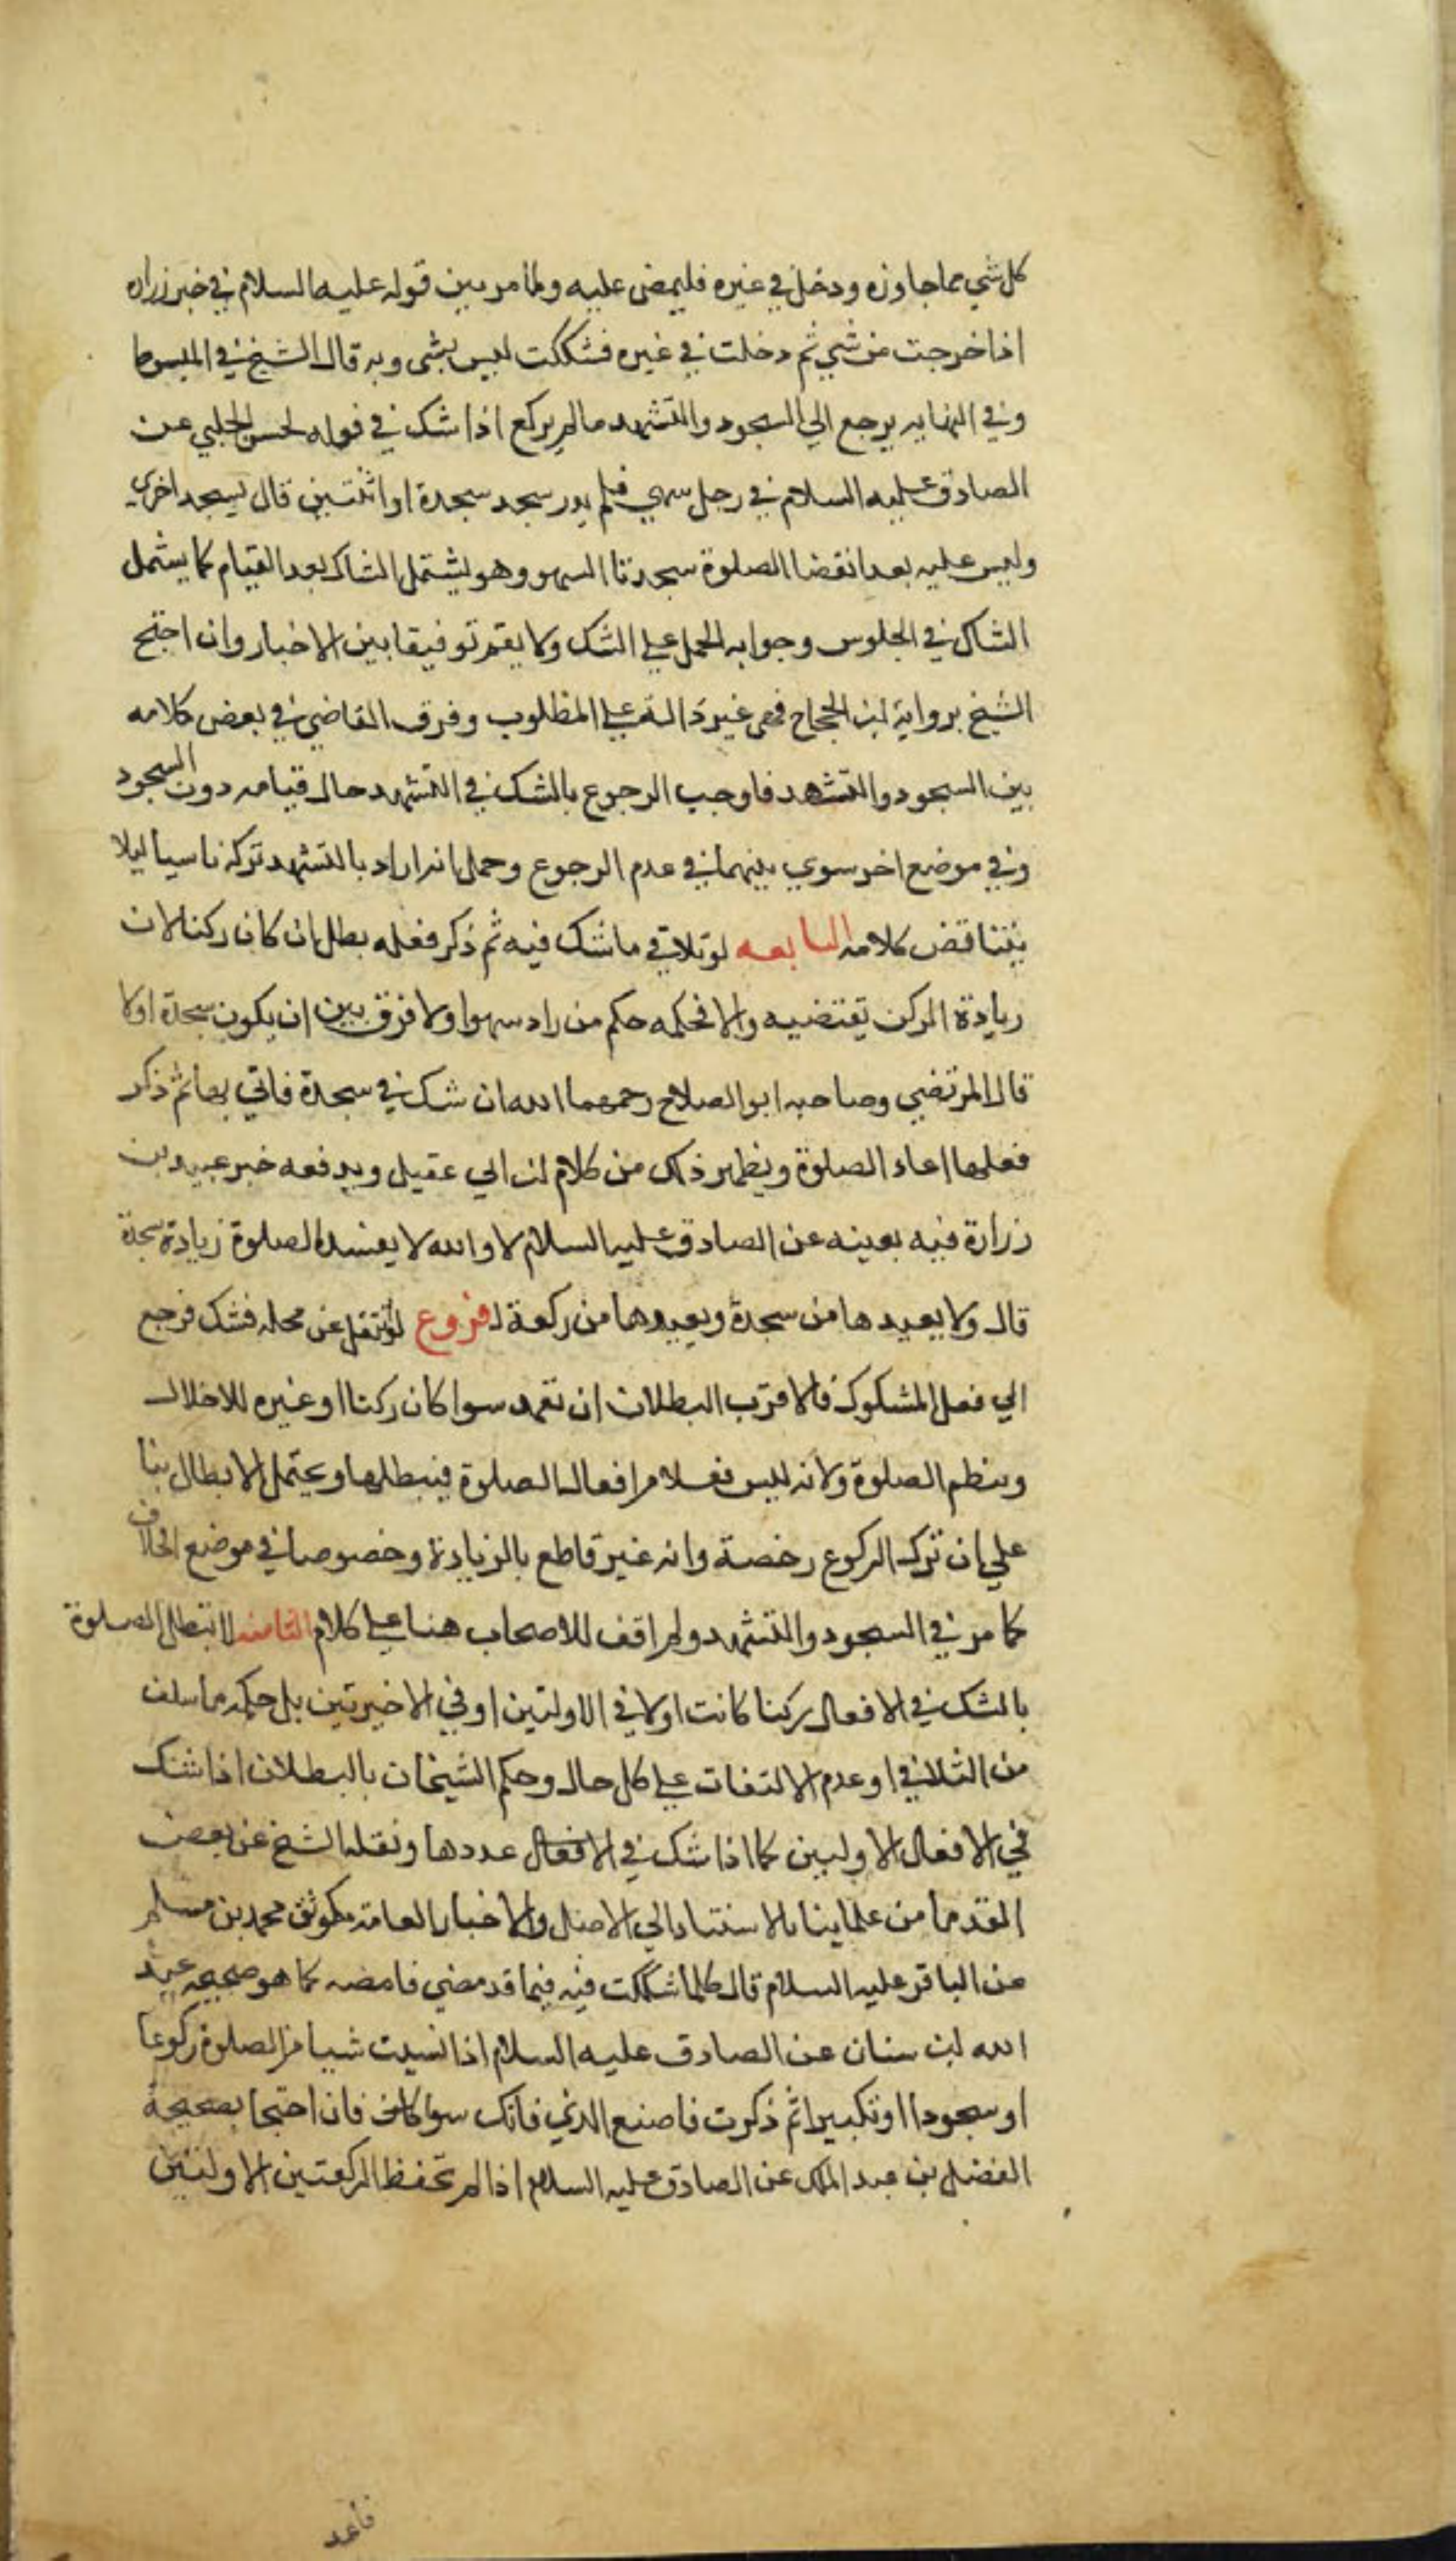 كل شي مما جاوزه ودخل في غيره فليمض عليه ولما مر من قوله عليه السلام في خبر زراره
اذا خرجت من شي ثم دخلت في غيره فشككت ليس بشى وبه قال الشيخ في المبسوط
وفي النهايه يرجع الي السجود والتشهد مالم يركع اذا شك في فوله لحسن الحلبي عن
الصادق عليه السلام في رجل سهي فلم يدر سجد سجدة او اثنتين قال يسجد اخري
وليس عليه بعد انقضا الصلوة سجدتا السهو وهو يشتمل الشاك بعد القيام كما يشمل
الشاك في الجلوس وجوابه الحمل علي الشك ولا يقم توفيقا بين الاخبار وان احتج
الشيخ برواية ابن الحجاج فهي غير دالة علي المطلوب وفرق القاضي في بعض كلامه
بين السجود والتشهد فاوجب الرجوع بالشك في التشهد حال قيامه دون السجود
وفي موضع اخر سوي بينهما في عدم الرجوع وحمل انه اراد بالتشهد تركه ناسيا ليلا
يتناقض كلامه السابعه لو تلاقي ما شك فيه ثم ذكر فعله بطل ان كان ركنا لان
زيادة الركن تقتضيه والا فحكمه حكم من زاد سهوا ولا فرق بين ان يكون سجدة اولا
قال المرتضي وصاحبه ابو الصلاح رحمهما الله ان شك في سجدة فاتي بها ثم ذكر
فعلها اعاد الصلوة ويظهر ذلك من كلام ابن ابي عقيل ويدفعه خبر عبيد بن
زرارة فيه بعينه عن الصادق عليه السلام لا والله لا يفسد الصلوة زيادة سجدة
قال ولا يعيدها من سجدة ويعيدها من ركعة فروع لو انتقل عن محله فشك فرجع
الي فعل المشكوك فالاقرب البطلان ان تعمد سوا كان ركنا او غيره للاخلال
وبنظم الصلوة ولانه ليس فعلا من افعال الصلوة فيبطلها ويحتمل الابطال بنا
علي ان ترك الركوع رخصة وانه غير قاطع بالزيادة وخصوصا في موضع الخلاف
كما مر في السجود والتشهد ولم اقف للاصحاب هنا علي كلام الثامنه لا تبطل الصلوة
بالشك في الافعال ركنا كانت اولا في الاولتين او في الاخيرتين بل حكمه ما سلف
من التلافي او عدم الالتفات علي كل حال وحكم الشيخان بالبطلان اذا شك
في الافعال الاوليين كما اذا شك في الافعال عددها ونقله الشيخ عن بعض
القدما من علماينا بالاستناد الي الاصل والاخبار العامة كموثق محمد بن مسلم
عن الباقر عليه السلام قال كلما شككت فيه فيما قد مضي فامضه كما هو صحيحه عبد
الله ابن سنان عن الصادق عليه السلام اذا نسيت شيا من الصلوة ركوعا
او سجودا او تكبيرا ثم ذكرت فاصنع الذي فاتك سوا كان فان احتجا بصحيحة
الفضل بن عبد الملك عن الصادق عليه السلام اذا لم تحفظ الركعتين الاولتين
فاعد